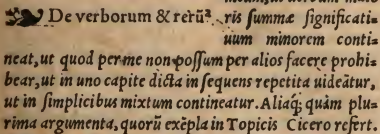 De verborum & rerū ris summæ significati-
uum minorem conti-
neat, ut quod per me non possum per alios facere prohi-
bear, ut in uno capite dicta in sequens repetita uideātur,
ut in simplicibus mixtum contineatur. Aliaq́; quàm plu-
rima argumenta, quorū exẽpla in Topicis Cicero refert.